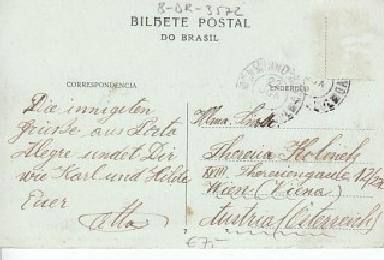 8-DR-3572
BILHETE POSTAL
DO BRASIL
CORRESPONDENCIA
ENDEREÇO
Die innigsten
Grüsse aus Porto
Alegre sendet Dir
wie Karl und Hilde
Euer
Otto
Theresia
XVIII. Theresiengasse 12/
Wien (Viena)
Austria (Österreich)
€7,-